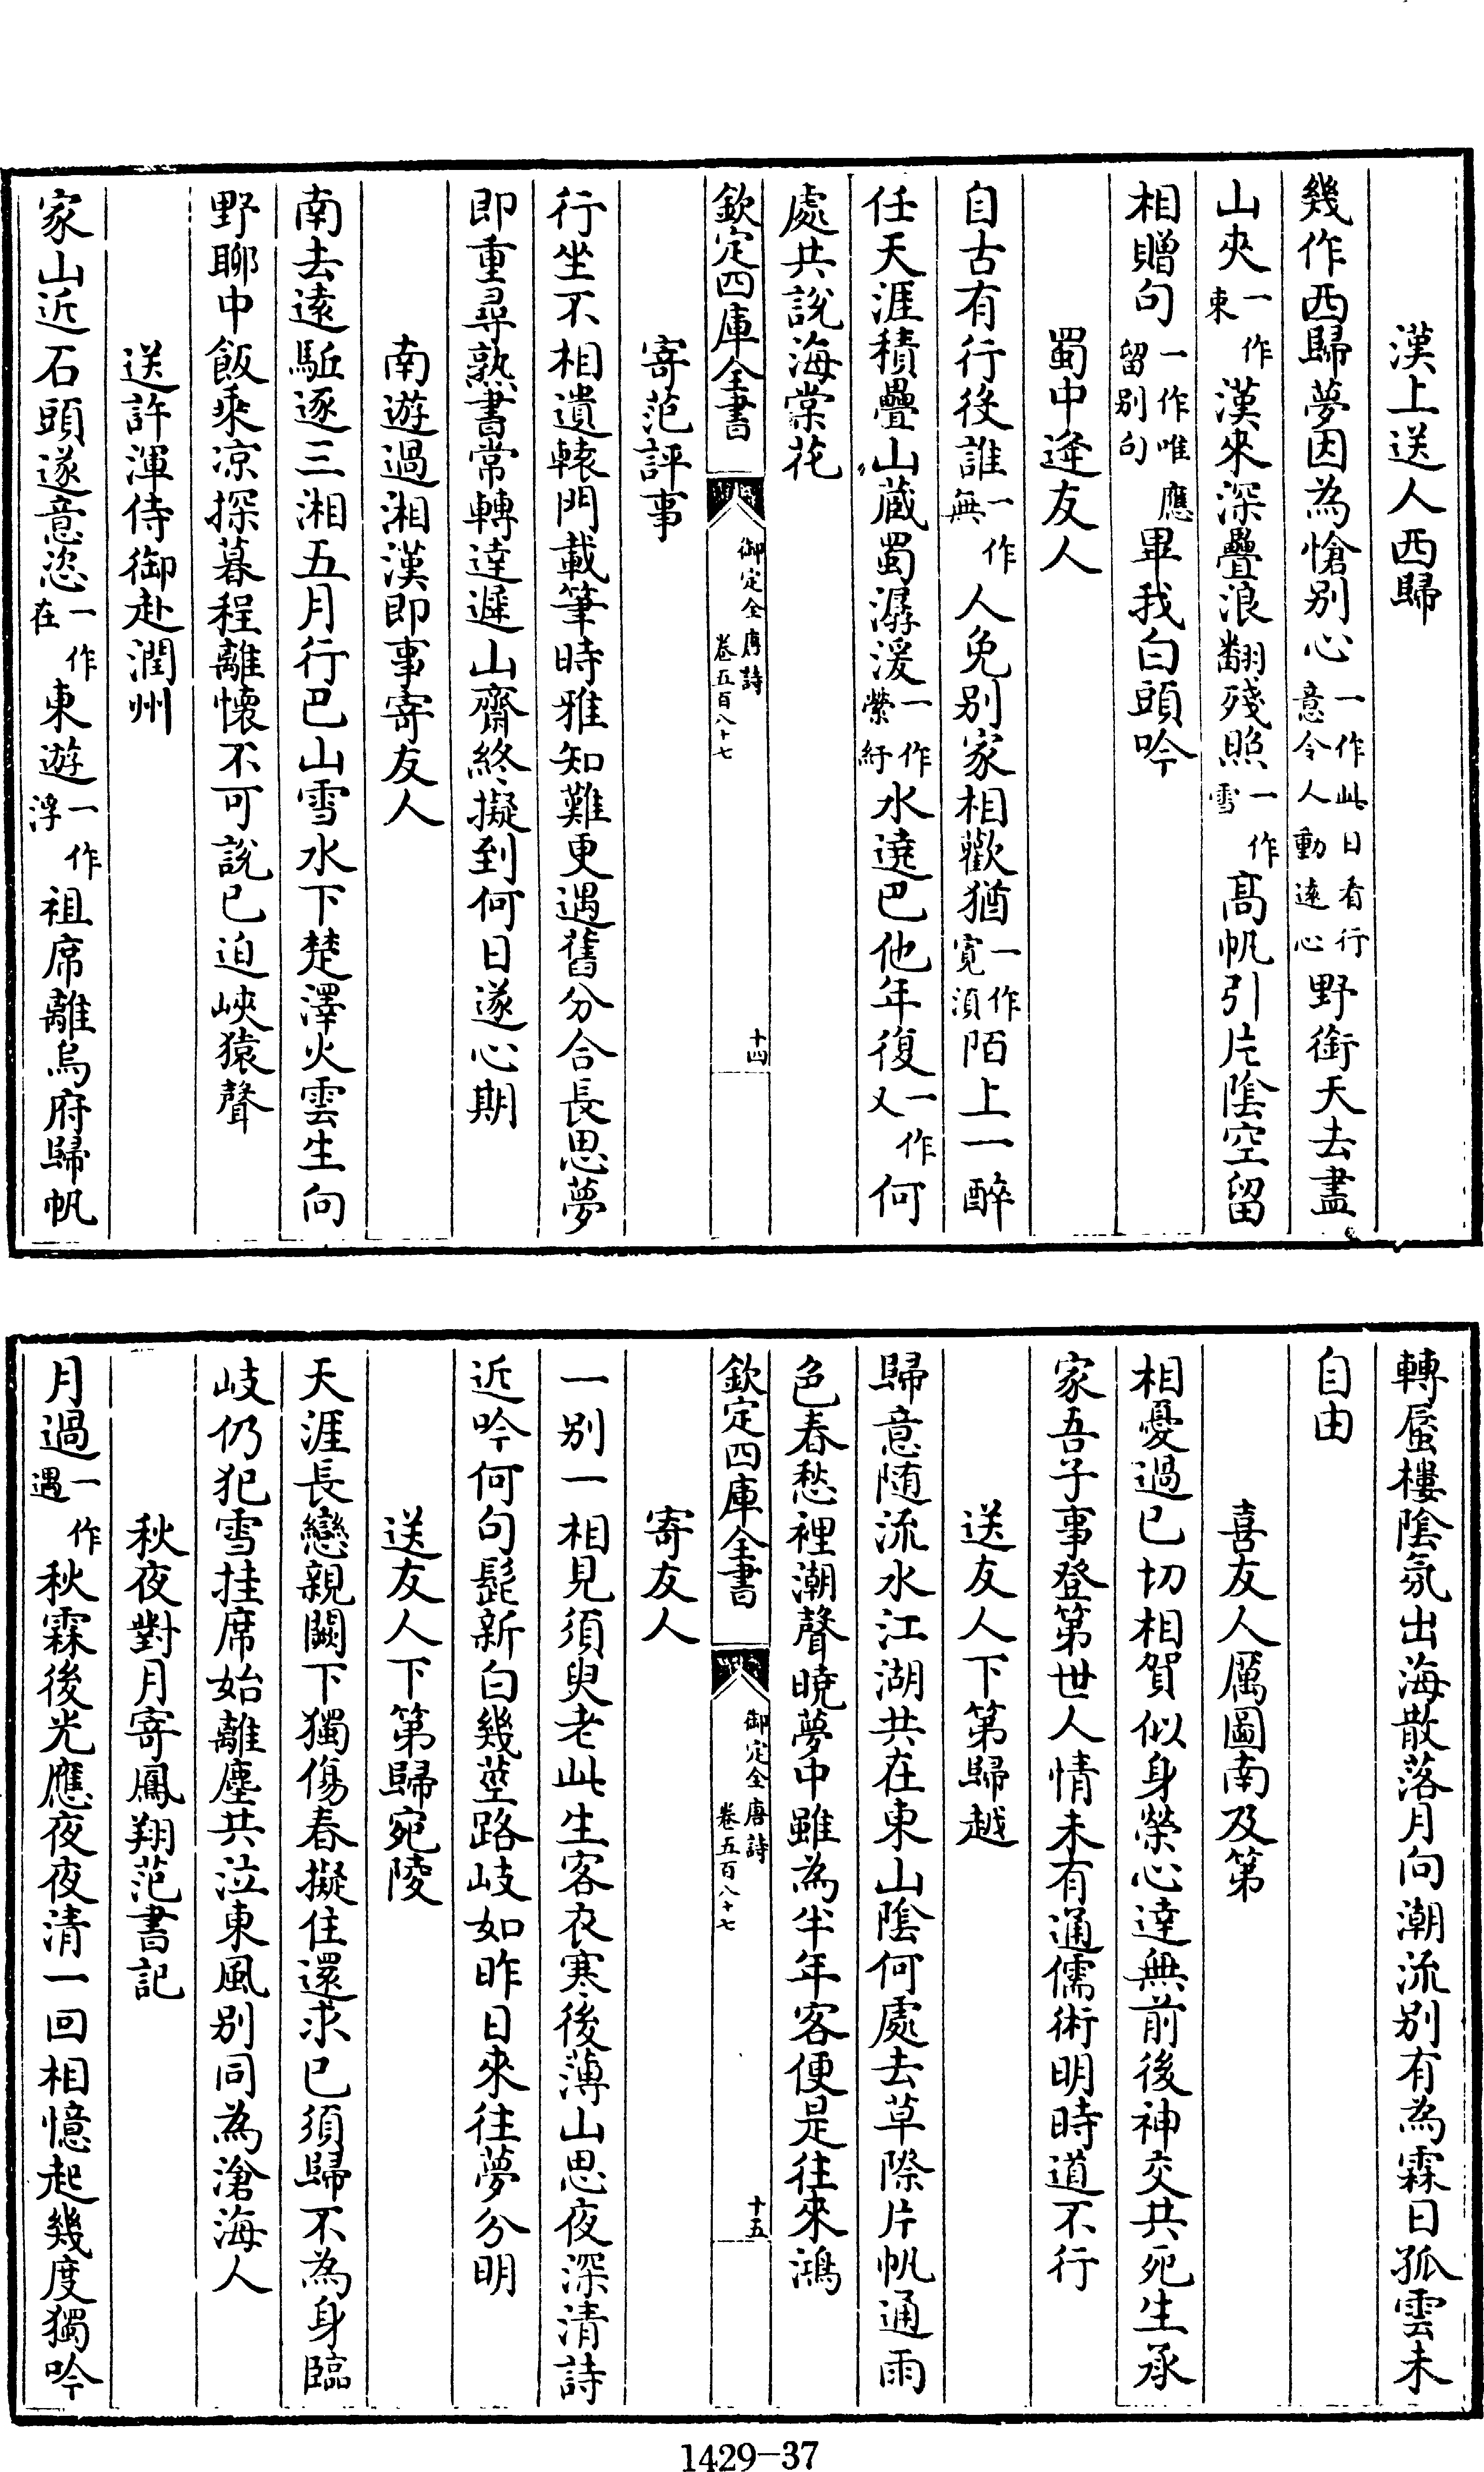 漢上送人西歸
幾作西歸夢因為愴别心一作此日看行意令人動遠心野銜天去盡
山夾一作束漢來深疊浪翻殘照一作雪髙帆引片隂空留
相贈句一作唯留别句應畢我白頭吟
蜀中逢友人
自古有行役誰一作無人免别家相歡猶一作寛須陌上一醉
任天涯積疊山藏蜀潺湲一作縈紆水遶巴他年復一作又何
處共説海棠花
欽定四庫全書
御定全唐詩
卷五百八十七
十四
寄范評事
行坐不相遺轅門載筆時雅知難更遇舊分合長思夢
即重尋熟書常轉達遲山齋終擬到何日遂心期
南遊過湘漢即事寄友人
南去逺駈逐三湘五月行巴山雪水下楚澤火雲生向
野聊中飯乘凉探暮程離懷不可説已迫峽猿聲
送許渾侍御赴潤州
家山近石頭遂意恣一作在東遊一作浮祖席離烏府歸帆
轉蜃樓隂氛出海散落月向潮流别有為霖日孤雲未
自由
喜友人厲圖南及第
相憂過已切相賀似身榮心達無前後神交共死生承
家吾子事登第世人情未有通儒術明時道不行
送友人下第歸越
歸意随流水江湖共在東山隂何處去草際片帆通雨
色春愁裡潮聲曉夢中雖為半年客便是往來鴻
欽定四庫全書
御定全唐詩
卷五百八十七
十五
寄友人
一别一相見須臾老此生客衣寒後薄山思夜深清詩
近吟何句髭新白幾莖路岐如昨日來往夢分明
送友人下第歸宛陵
天涯長戀親闕下獨傷春擬住還求已須歸不為身臨
岐仍犯雪挂席始離塵共泣東風别同為滄海人
秋夜對月寄鳳翔范書記
月過一作遇秋霖後光應夜夜清一回相憶起幾度獨吟
1429-37